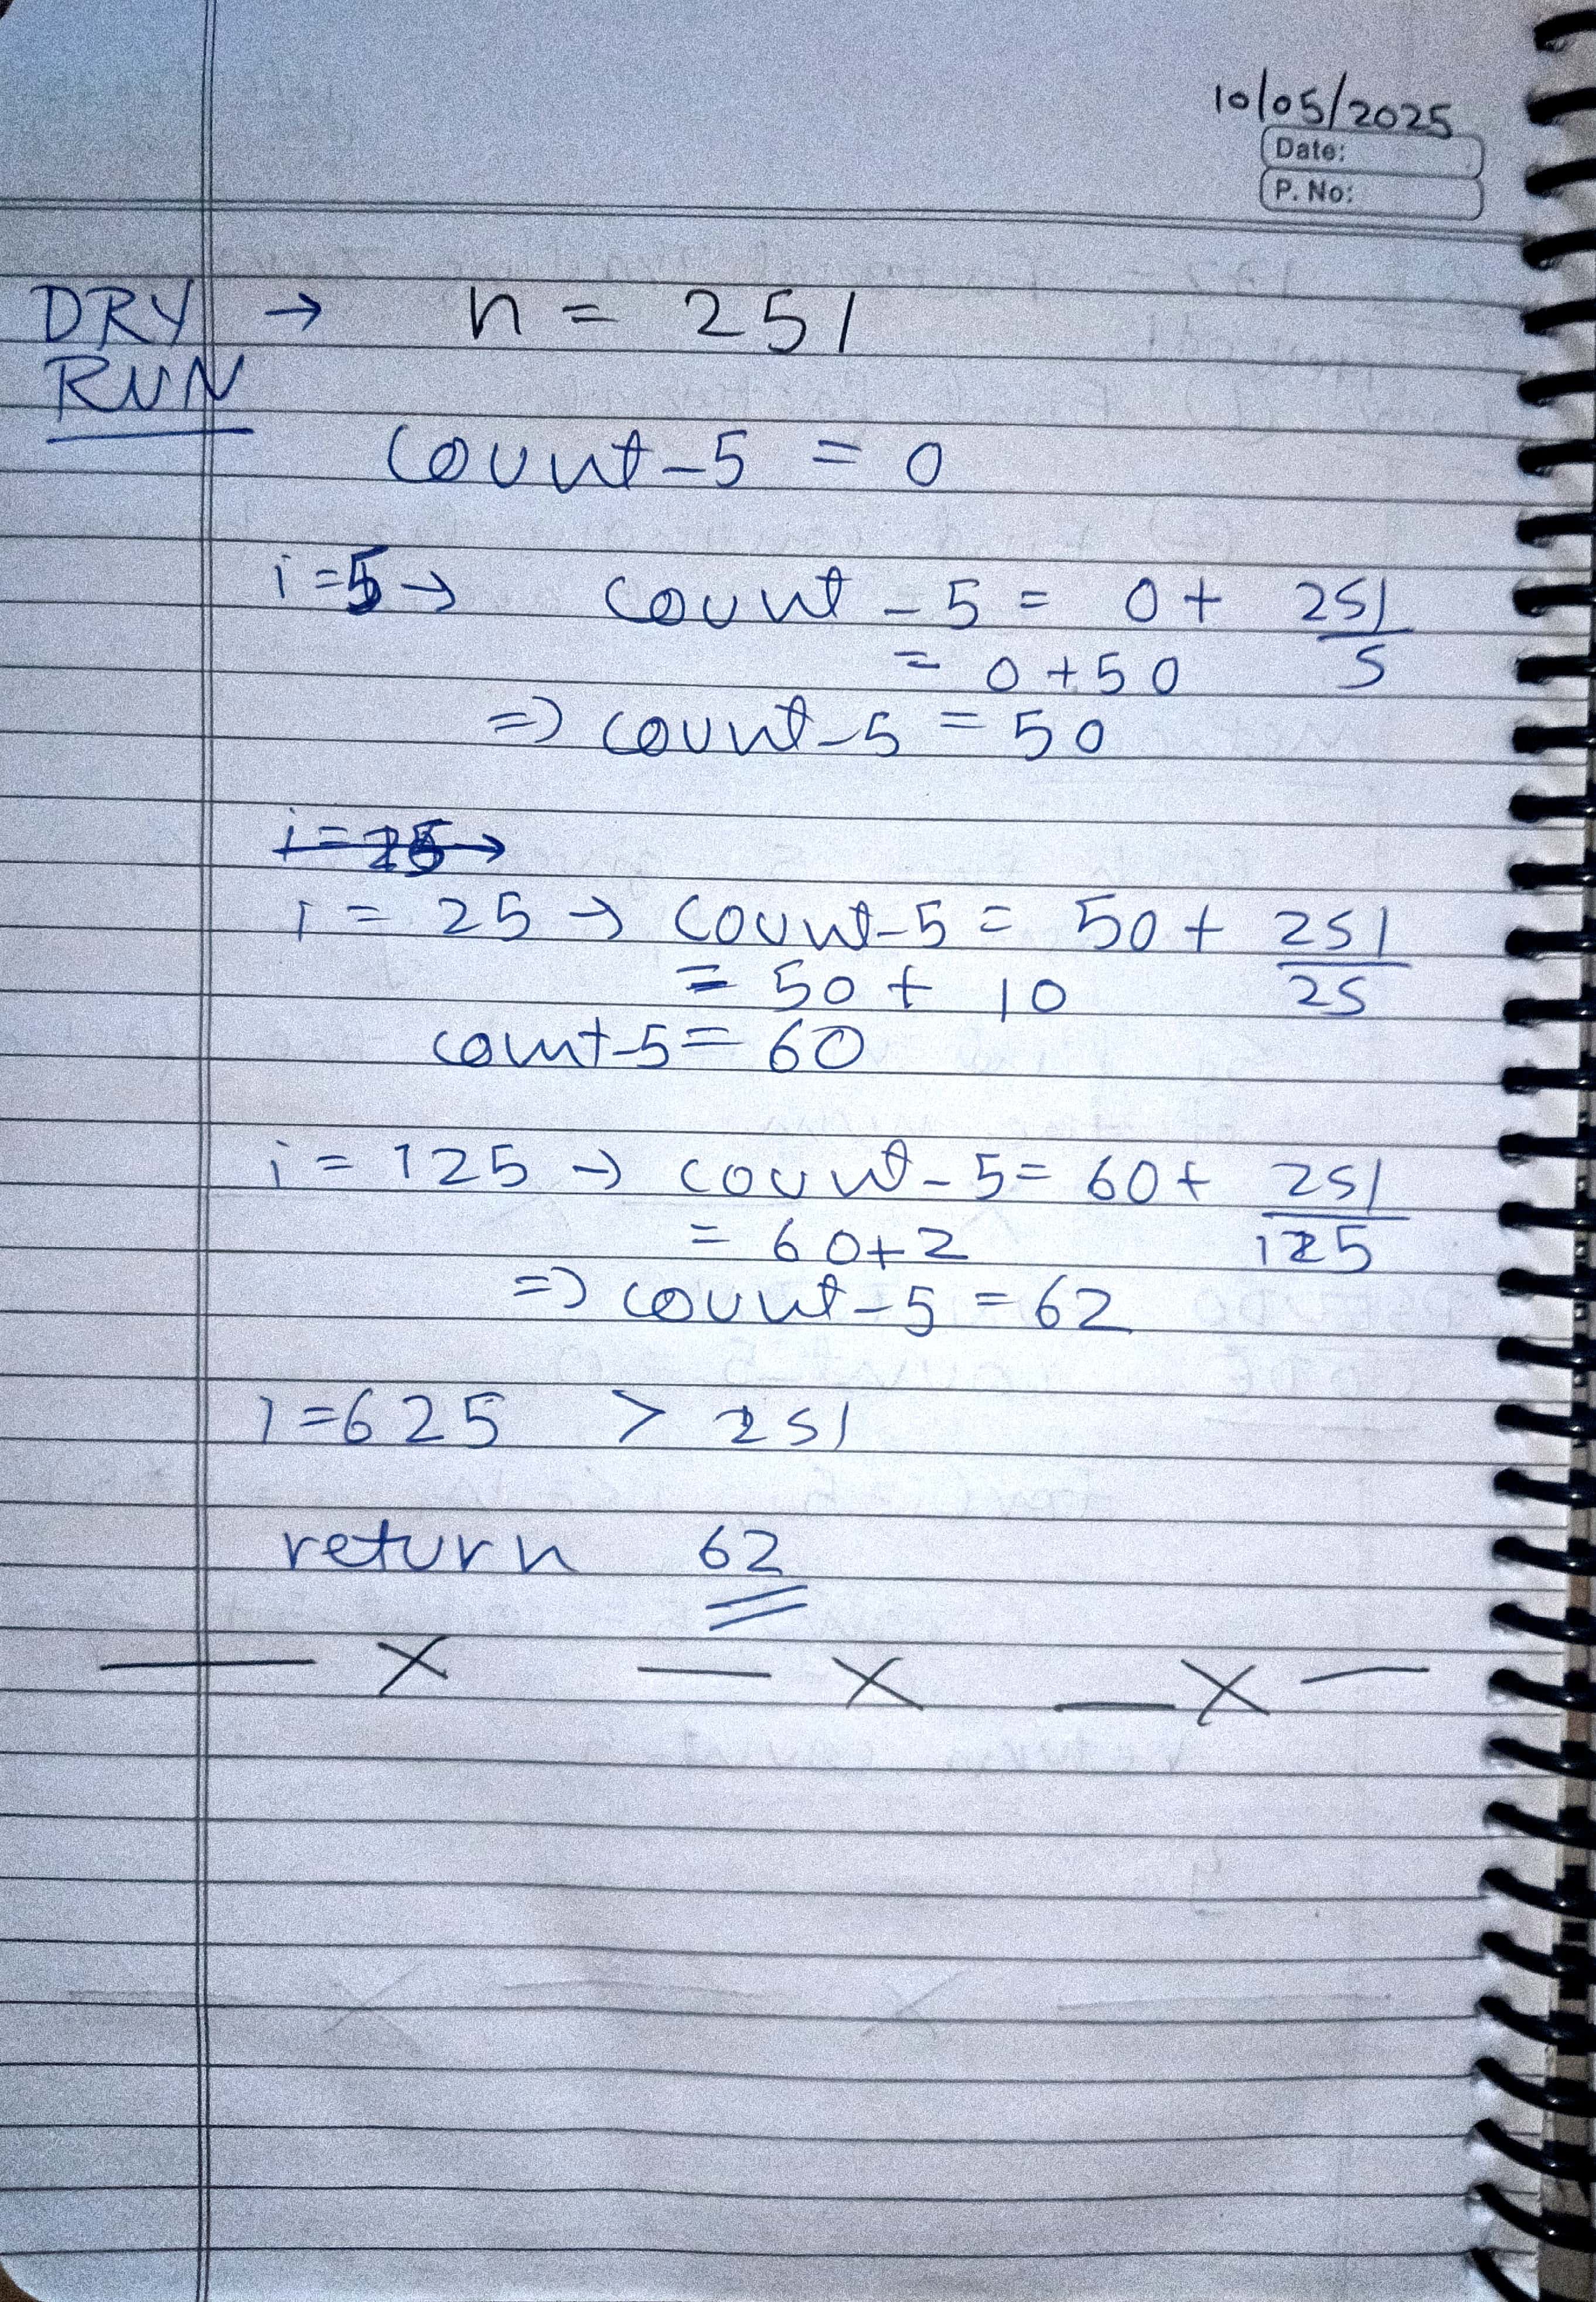 10/05/2025
Date:
P. No:
DRY → n = 251
RUN
count-5 = 0
i=5→ count-5 = 0+ 251/5
= 0+50
=> count-5 = 50
i = 25 → count-5 = 50+ 251/25
= 50+ 10
count-5= 60
i = 125 → count-5= 60+ 251/125
= 60+2
=> count-5 = 62
i=625 > 251
return 62
— x — x — x —